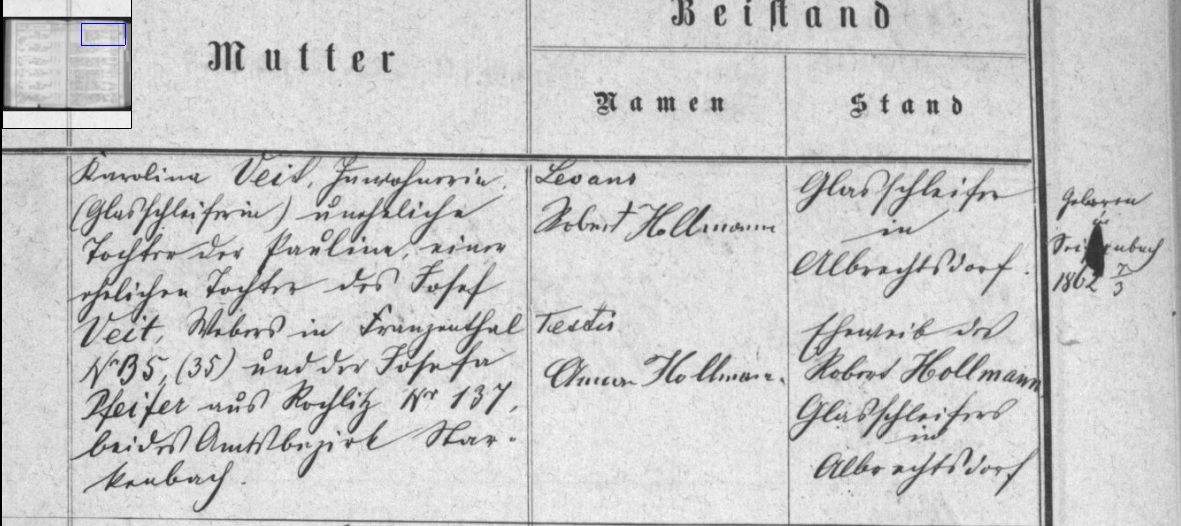 Beistand
Mutter
Namen
Stand
Karolina Veit, Inwohnerin,
(Glasschleiferin) uneheliche
Tochter der Pauline, einer
ehelichen Tochter des Josef
Veit, Webers in Franzenthal
Nr 35, (35) und der Josefa
Pfeifer aus Rochlitz Nr 137,
beides Amtsbezirk Star-
kenbach.
Levans
Robert Hollmann
Testis
Anna Hollmann.
Glasschleifer
in
Albrechtsdorf.
Eheweib des
Robert Hollmann
Glasschleifers
in
Albrechtsdorf
Geboren
1862 7/3